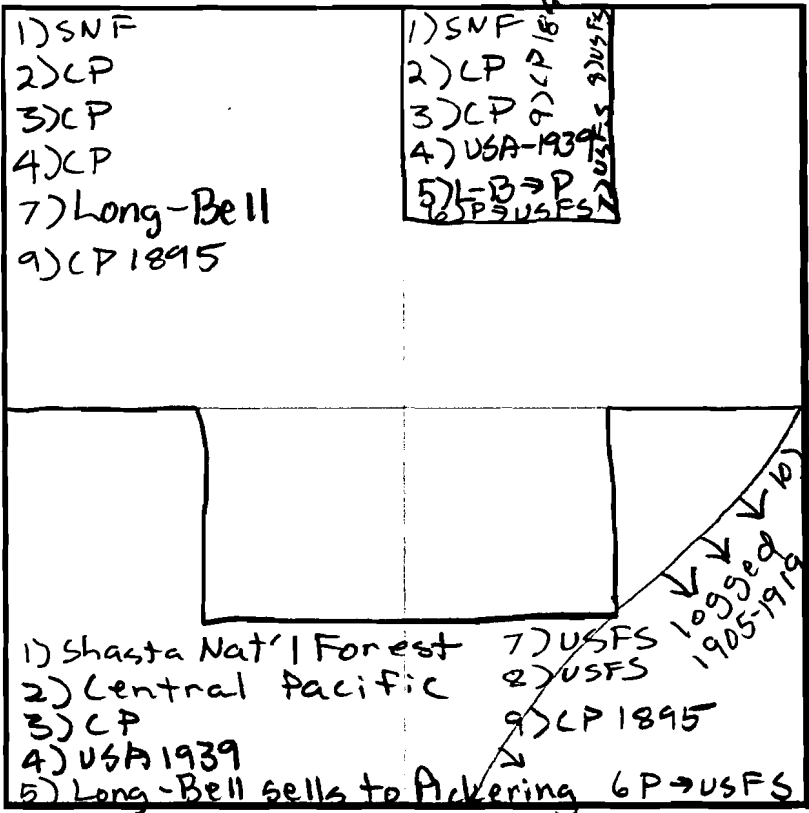 1) SNF
2) CP
3) CP
4) CP
7) Long-Bell
9) CP 1895
1) SNF
2) CP
3) CP
4) USA-1939
5) L-B → P
6) P → USFS
7) USFS
8) USFS
9) CP 18
10)
logged
1905-1919
1) Shasta Nat'l Forest
2) Central Pacific
3) CP
4) USA 1939
5) Long-Bell sells to Pickering
6 P → USFS
7) USFS
8) USFS
9) CP 1895